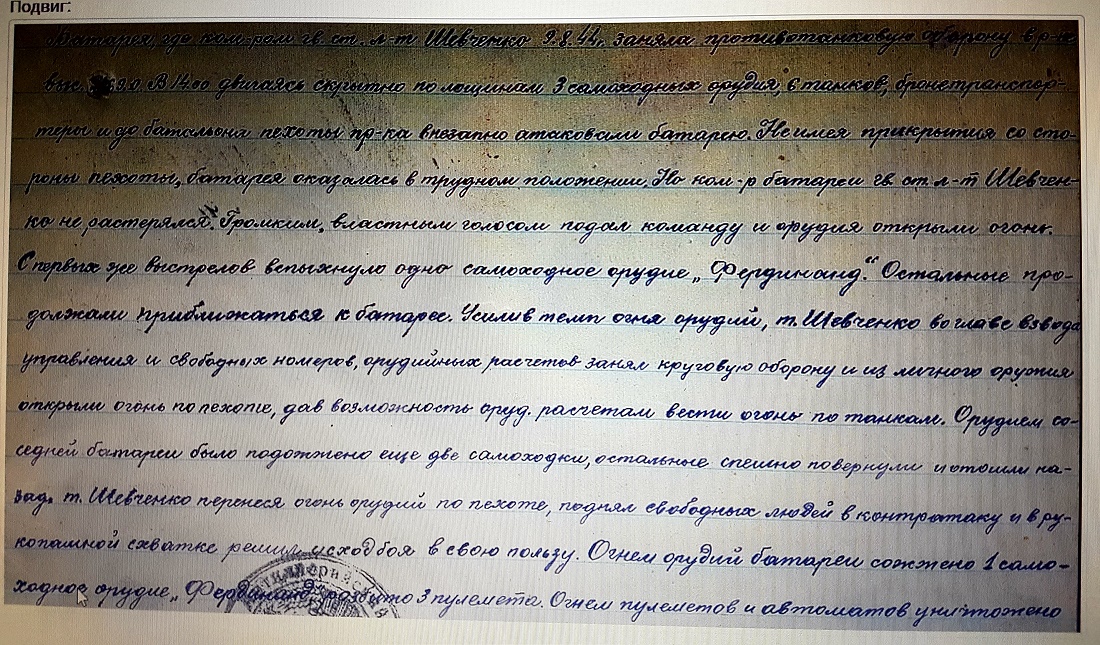 Подвиг:
Батарея, где ком-ром гв. ст. л-т Шевченко 9.8.44г. заняла противотанковую оборону в р-не
выс. 9.0. В 14.00 двигаясь скрытно по лощинам 3 самоходных орудия, 6 танков, бронетранспор-
теры и до батальона пехоты пр-ка внезапно атаковали батарею. Не имея прикрытия со сто-
роны пехоты, батарея оказалась в трудном положении. Но ком-р батареи гв. ст. л-т Шевчен-
ко не растерялся. Громким, властным голосом подал команду и орудия открыли огонь.
С первых же выстрелов вспыхнуло одно самоходное орудие „Фердинанд". Остальные про-
должали приближаться к батарее. Усилив темп огня орудий, т. Шевченко во главе взвода
управления и свободных номеров, орудийных расчетов занял круговую оборону и из личного оружия
открыли огонь по пехоте, дав возможность оруд. расчетам вести огонь по танкам. Орудием со-
седней батареи было подожжено еще две самоходки, остальные спешно повернули и отошли на-
зад. т. Шевченко перенеся огонь орудий по пехоте, поднял свободных людей в контратаку и в ру-
копашной схватке решил исход боя в свою пользу. Огнем орудий батареи сожжено 1 само-
ходное орудие „Фердинанд", разбито 3 пулемета. Огнем пулеметов и автоматов уничтожено